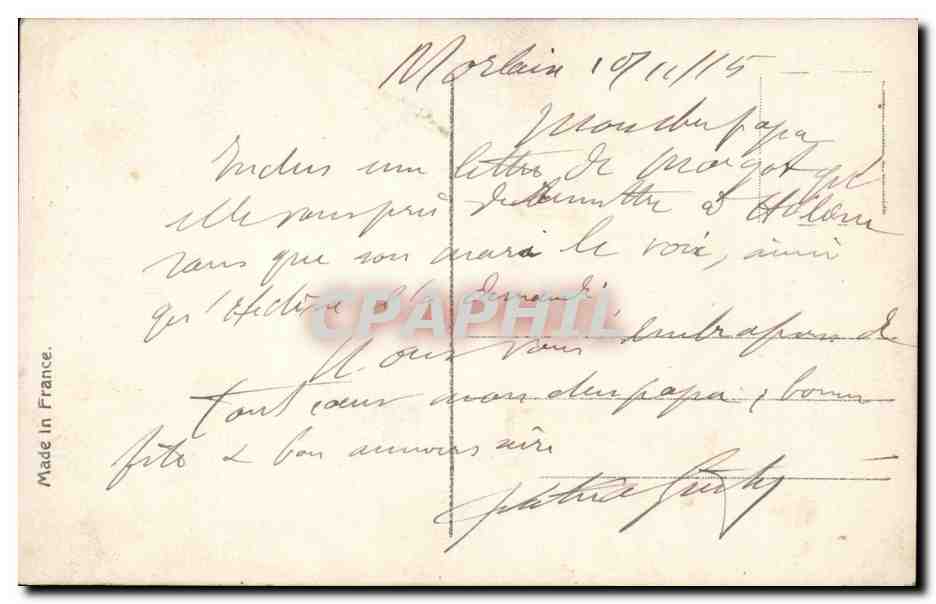 Morlaix 10/11/15
Mon cher papa
Inclus une lettre de Margot qu'
elle vous prie de remettre à Hélène
sans que son mari le voie, ainsi
qu'Hélène l'a demandé.
Nous vous embrassons de
tout cœur mon cher papa, bonne
fête & bon anniversaire
CPAPHIL
Made in France.